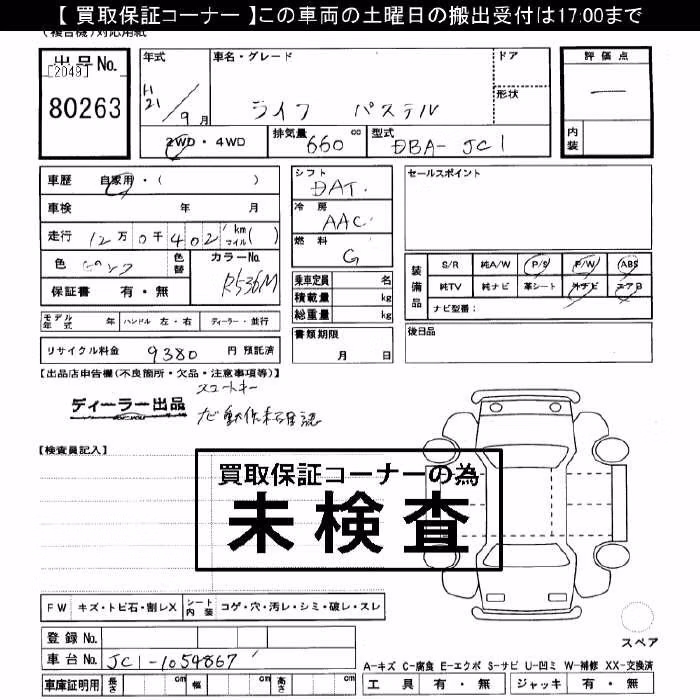 【 買取保証コーナー 】この車両の土曜日の搬出受付は17:00まで
(複合機)対応用紙
出品 No.
[2049]
80263
年式
H21/9月
車名・グレード
ライフ パステル
ドア
形状
評価点
—
内装
2WD・4WD
排気量
660 cc
型式
DBA-JC1
車歴 自家用・( )
車検 年 月
走行 12万0千402 km マイル ( )
色 ピンク 色替
カラーNo. R536M
保証書 有・無
シフト
DAT
冷房
AAC
燃料
G
乗車定員 名
積載量 kg
総重量 kg
セールスポイント
装備品
S/R 純A/W P/S P/W ABS
純TV 純ナビ 革シート 外ナビ エアB
ナビ型番:
モデル年式 年 ハンドル 左・右 ディーラー・並行
書類期限
月 日
後日品
リサイクル料金 9380 円 預託済
【出品店申告欄(不良箇所・欠品・注意事項等)】
スマートキー
ディーラー出品
ナビ動作未確認
【検査員記入】
買取保証コーナーの為
未検査
FW キズ・トビ石・割レX シート内装 コゲ・穴・汚レ・シミ・破レ・スレ
登録 No.
車台 No. JC1-1059867
車庫証明用 長さ cm 幅 cm 高さ cm
スペア
A-キズ C-腐食 E-エクボ S-サビ U-凹ミ W-補修 XX-交換済
工具 有・無 ジャッキ 有・無